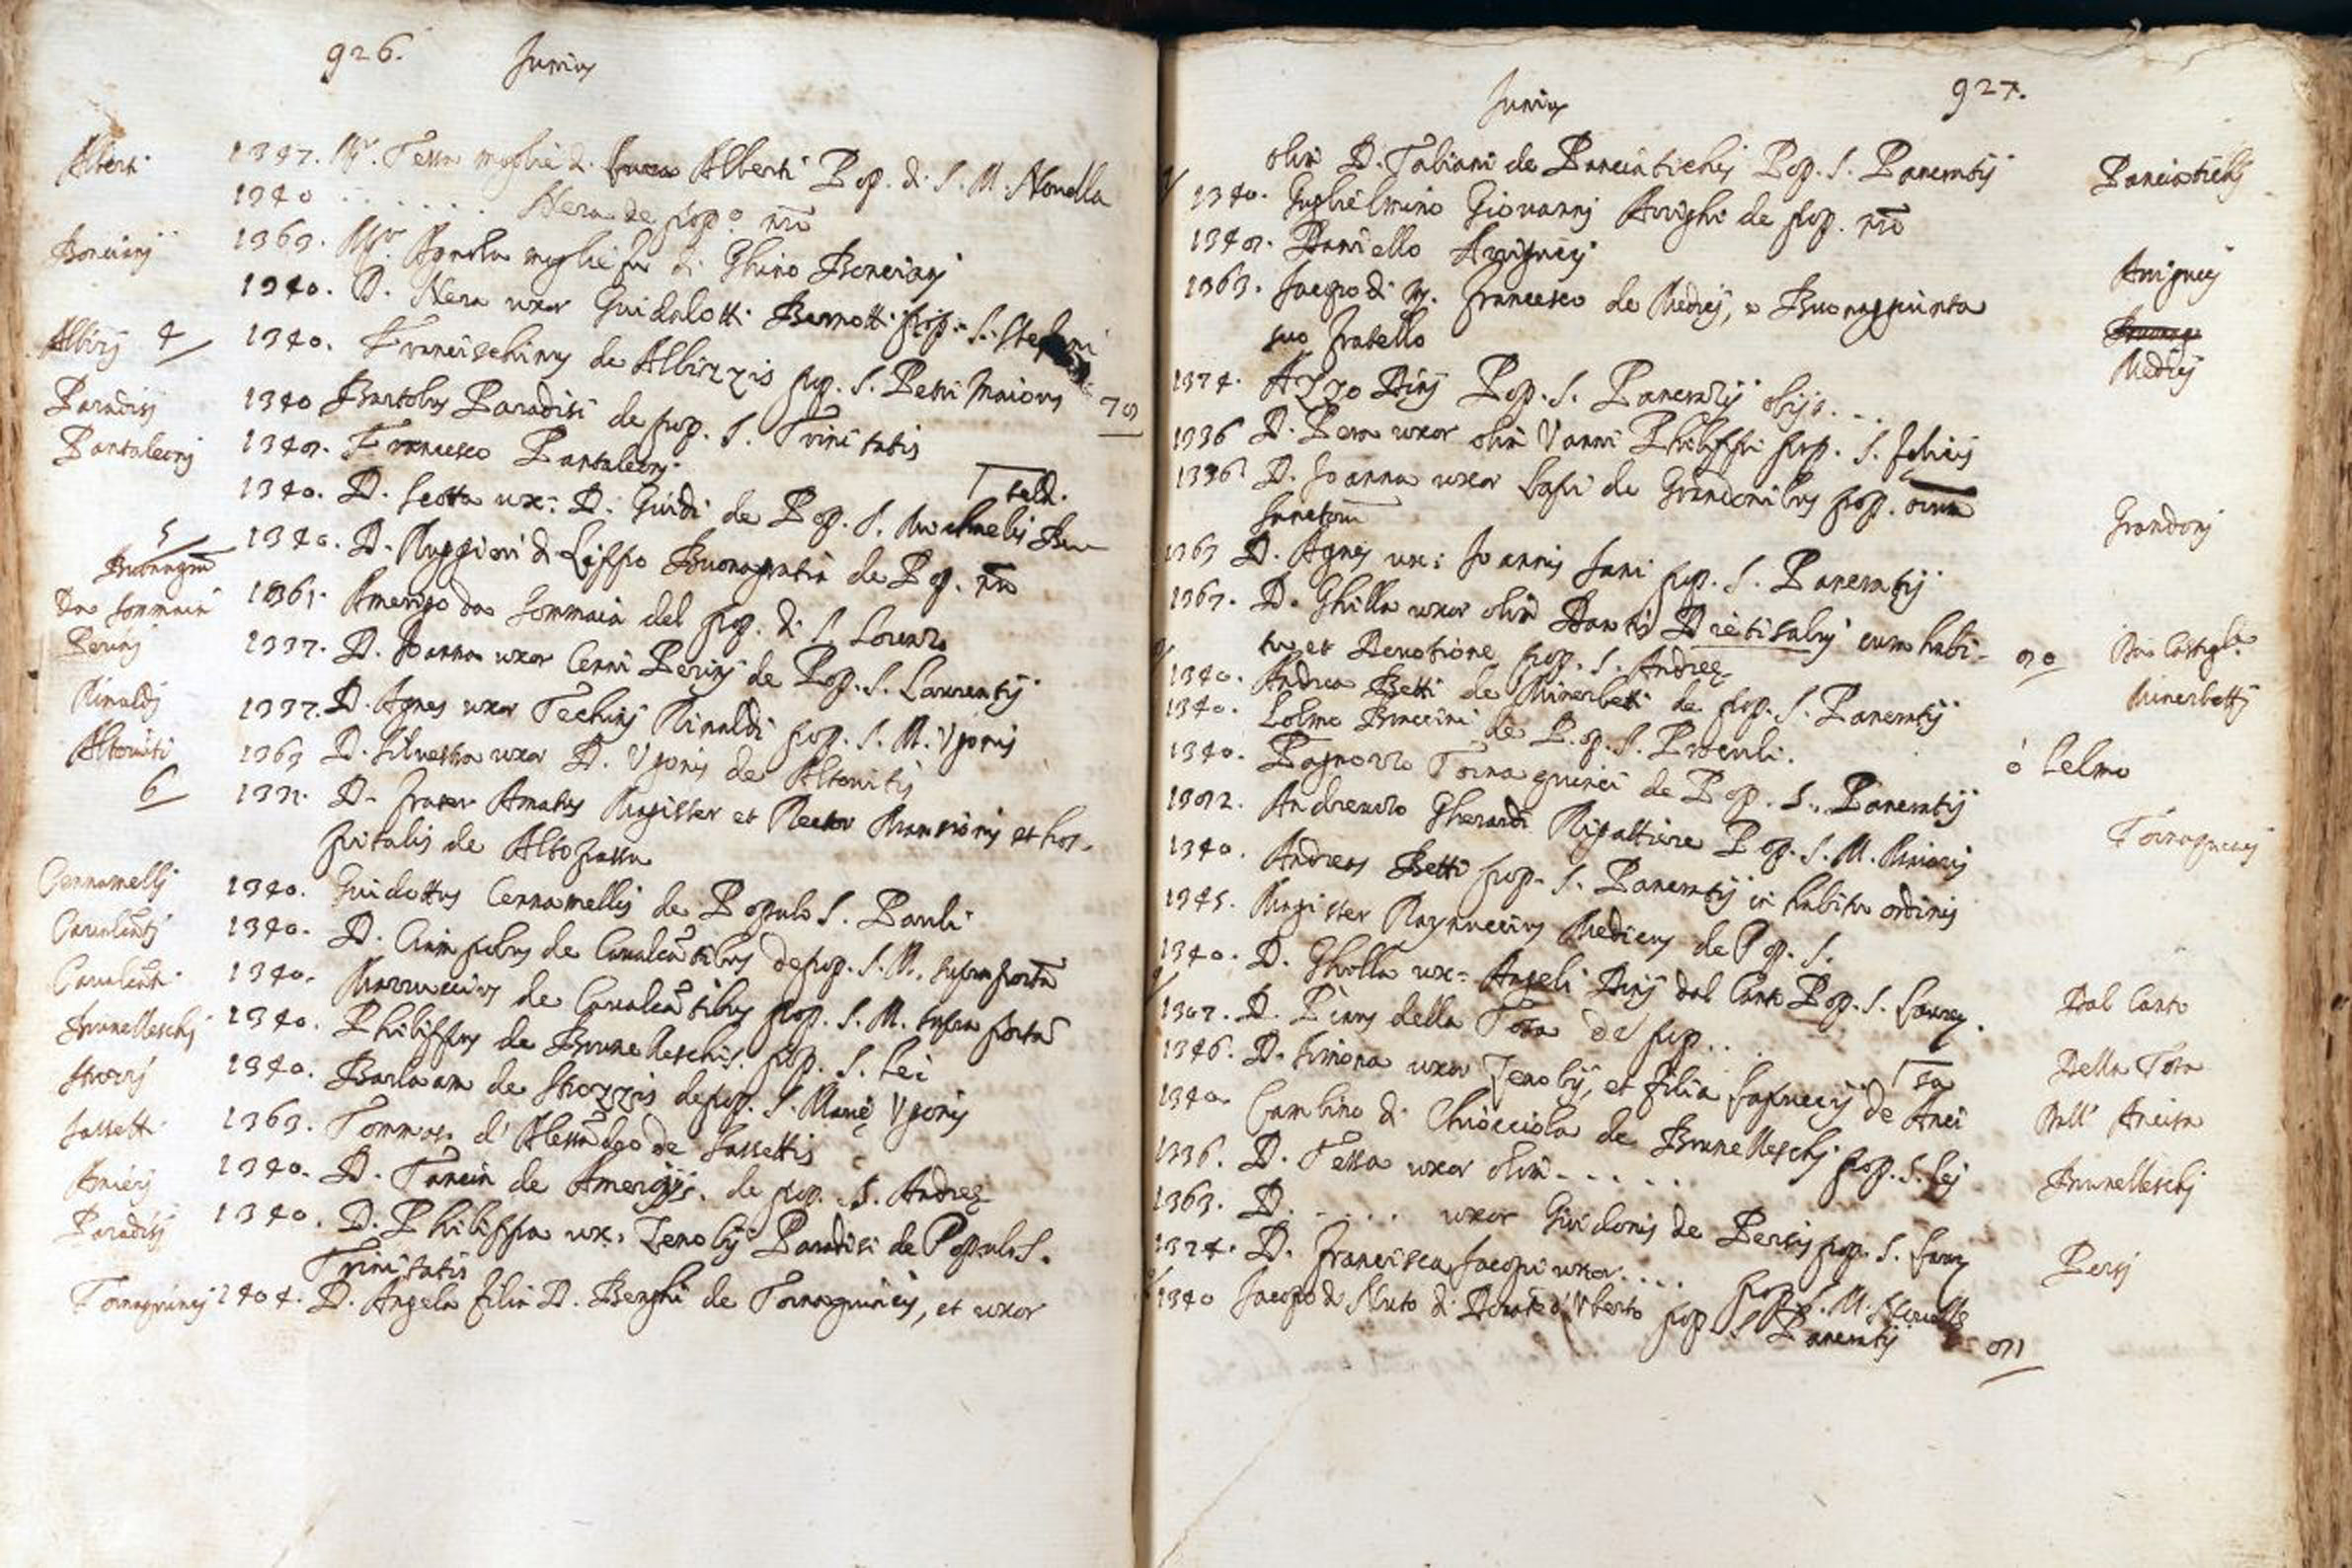 926. Junius
Alberti 1347. Mª. Tessa moglie d. Alberti Pop. di S. M. Nouella
1340 . . . . . . Nera de pop.º nrō
Bonciani 1363. Mª Agnola moglie fu di Ghino Bonciani
1340. D. Nera uxor Guidalotti Bernotti pop. S. Stefani
Albizi 4 1340. Francischinus de Albizzis pop. S. Petri Maioris
Paradisi 1340 Bartolus Paradisi de pop. S. Trinitatis 79
Pantaleoni 1340. Francesco Pantaleoni
tald.
1340. D. Scotta ux: D. Guidi de Pop. S. Michaelis Ber
5
Buonagra 1340. D. Ruggieri di Lippo Buonagratia de Pop. nrō
Da Sommaia 1361. Amerigo da Sommaia del pop. di S. Lorenzo
Perini 1337. D. Joanna uxor Cenni Perini de Pop. S. Laurentij
Rinaldi 1337. D. Agnes uxor Techini Rinaldi pop. S. M. Vgonis
Altouiti 1363 D. Siluestra uxor D. Vgonis de Altouitis
6 1331. D. frater Amatus Magister et Rector Mansionis et hos-
pitalis de Altopassu
Cennamelli 1340. Guidottus Cennamellis de Populo S. Pauli
Caualcāti 1340. D. Ciampolus de Caualcātibus de pop. S. M. supra portā
Caualcāti 1340. Marruccius de Caualcātibus pop. S. M. supra portā
Brunelleschi 1340. Philippus de Brunelleschis pop. S. Lei
Strozzi 1340. Barlaam de Strozzis de pop. S. Marię Vgonis
Sassetti 1363. Tommaso d' Alessādro de Sassettis
Amieri 1340. D. Tancia de Amerigis. de pop. S. Andreę
Paradisi 1340. D. Philippa ux: Zenobij Paradisi de Populo S.
Trinitatis
Tornaquinci 1404. D. Angela filia D. Berghi de Tornaquincis, et uxor
Junius 927.
olim D. Fabiani de Panciatichis Pop. S. Pancratij Panciatichi
1340. Guglielmino Giovanni Arrighi de pop. nrō
1340. Daniello Arrigucci Arrigucci
1363. Jacopo di M. Francesco de Medici, e Buonagiunta
suo fratello Medici
1374. Azzo Dini Pop. S. Pancratij obijt. . . .
1336 D. Pera uxor olim Vanni Philippi pop. S. Felicis
1336 D. Joanna uxor Lapi de Grandonibus pop. oīum
Sanctorū Grandoni
1363 D. Agnes ux: Joannis Jani pop. S. Pancratij
1367. D. Ghilla uxor olim Dantis Dietisalui cum habi-
tu et Deuotione pop. S. Andreę
1340. Andrea Betti de Minerbetti de pop. S. Pancratij Minerbetti
1340. Lolmo Braccini de Pop. S. Proculi. ò Lelmo
1340. Pagnozzo Tornaquinci de Pop. S. Pancratij
1392. Andreuzzo Gherardi Rigattiere Pop. S. M. Maioris Tornaquinci
1340. Andreas Betti pop. S. Pancratij in habitu ordinis
1345. Magister Raynuccius Medicus de Pop. S.
1340. D. Ghilla ux: Angeli Dini dal Canto Pop. S. Laurē. Dal Canto
1347. D. Pinus della Tosa de pop. . . Della Tosa
1346. D. Simona uxor Zenobij, et filia Lapuccij de Anci
sa Dell' Ancisa
1340. Cambino di Chiocciola de Brunelleschi pop. S. Lei Brunelleschi
1336. D. Tessa uxor olim . . . . . .
1363. D. . . . . . uxor Guidonis de Percis pop. S. Laur
1324. D. Francisca Jacopi uxor . . . . pop. S. M. Perci
1340 Jacopo di Nuto di Donato d' Vberto pop. S. Pancratij